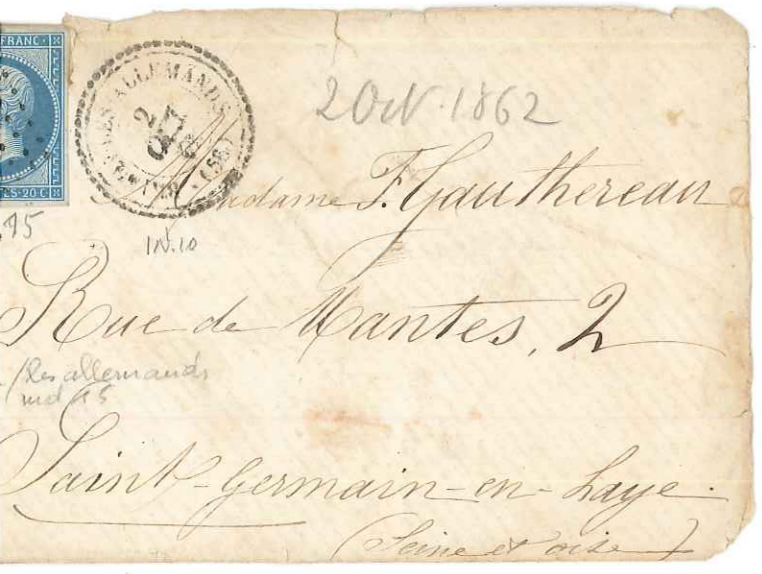 FRANC
20 C
ALLEMANDS
2
OCT
(58)
2 Oct. 1862
95
IN.10
Madame F. Gauthereau
Rue de Mantes, 2
les allemands
ind 15
Saint-Germain-en-Laye.
(Seine et oise)